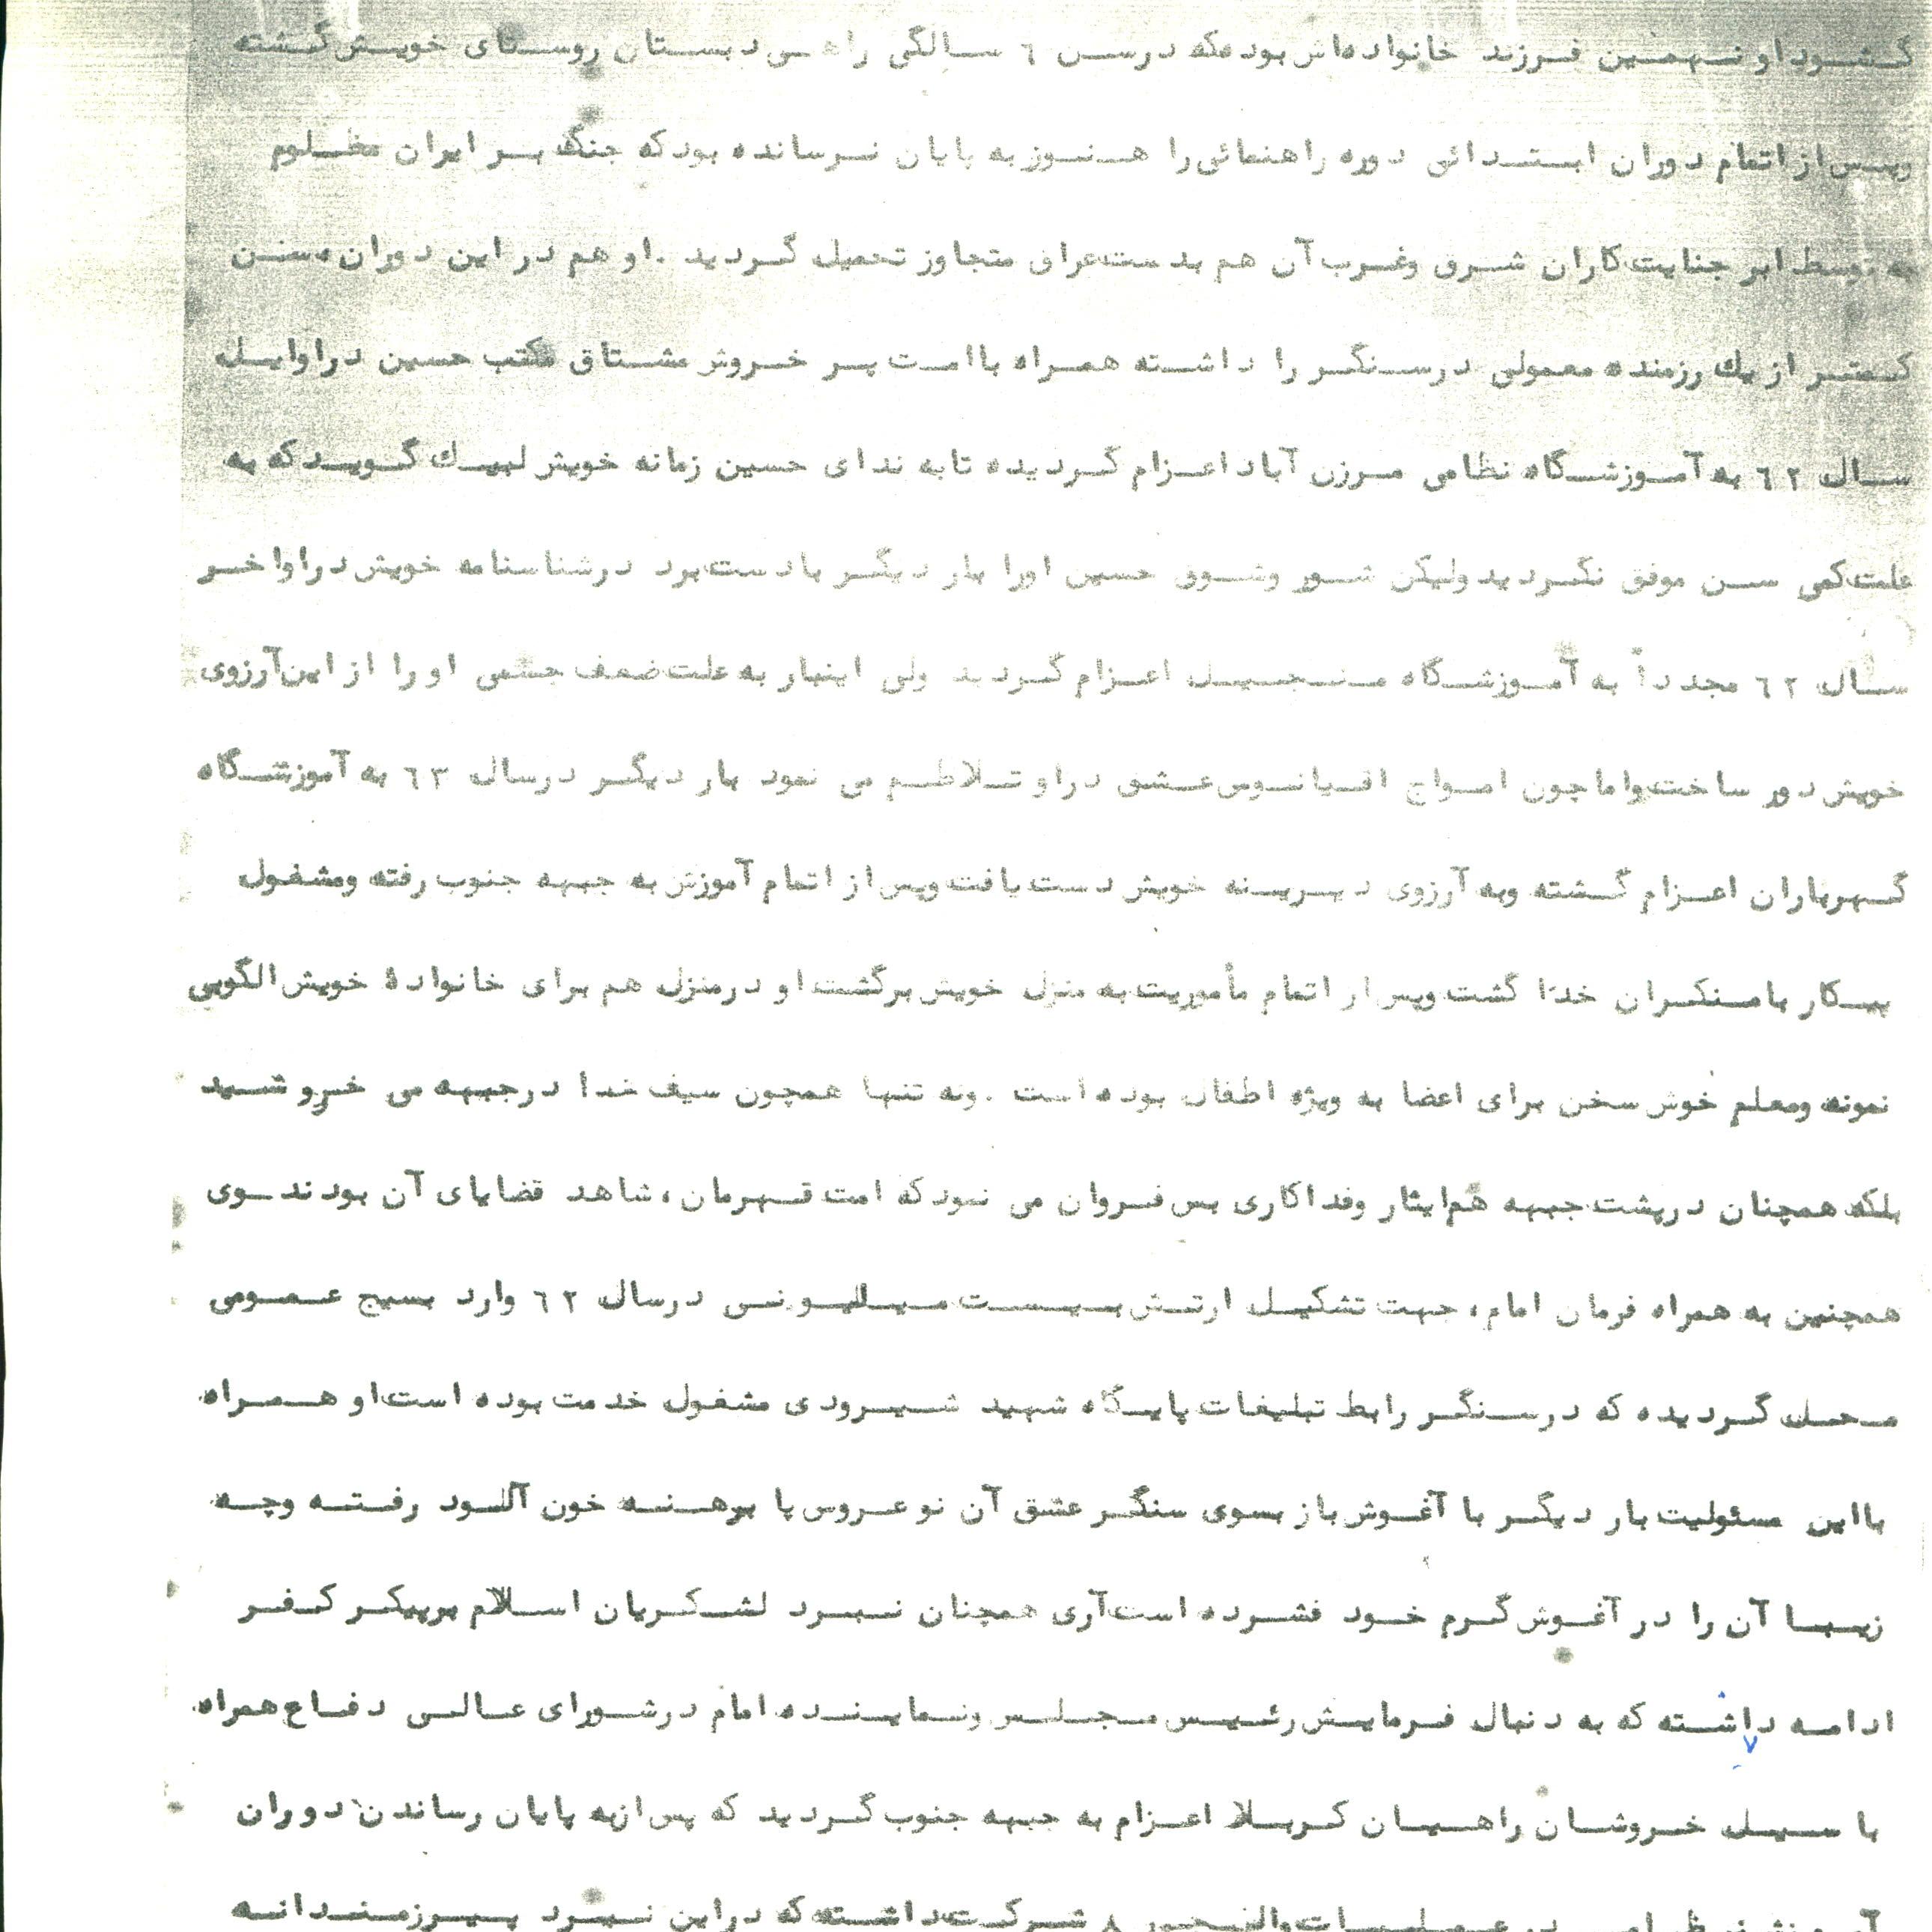 گشود او نهمین فرزند خانواده‌اش بوده که در سن ٦ سالگی راهی دبستان روستای خویش گشته
وپس از اتمام دوران ابتدائی دوره راهنمائی را هنوز به پایان نرسانده بود که جنگ بر ایران مظلوم
به توسط ابر جنایت کاران شرق وغرب آن هم بدست عراق متجاوز تحمیل گردید . او هم در این دوران، سن
کمتر از یك رزمنده معمولی در سنگر را داشته همراه با امت پر خروش مشتاق مکتب حسین در اوایل
سال ٦٢ به آموزشگاه نظامی مرزن آباد اعزام گردیده تا به ندای حسین زمانه خویش لبیك گوید که به
علت کمی سن موفق نگردید ولیکن شور وشوق حسین اورا بار دیگر با دست برد در شناسنامه خویش در اواخر
سال ٦٢ مجدداً به آموزشگاه منجیل اعزام گردید ولی اینبار به علت ضعف جسمی او را از این آرزوی
خویش دور ساخت واما چون امواج اقیانوس عشق در او تلاطم می نمود بار دیگر در سال ٦٣ به آموزشگاه
گهرباران اعزام گشته وبه آرزوی دیرینه خویش دست یافت وپس از اتمام آموزش به جبهه جنوب رفته ومشغول
پیکار با منکران خدا گشت وپس از اتمام مأموریت به منزل خویش برگشت او در منزل هم برای خانوادهٔ خویش الگویی
نمونه ومعلم خوش سخن برای اعضا به ویژه اطفال بوده است . ونه تنها همچون سیف خدا در جبهه می خروشید
بلکه همچنان در پشت جبهه هم ایثار وفداکاری بس فروان می نمود که امت قهرمان، شاهد قضایای آن بودند وی
همچنین به همراه فرمان امام، جهت تشکیل ارتش بیست میلیونی در سال ٦٢ وارد بسیج عمومی
محل گردیده که در سنگر رابط تبلیغات پایگاه شهید شیرودی مشغول خدمت بوده است او همراه
با این مسئولیت بار دیگر با آغوش باز بسوی سنگر عشق آن نو عروس پا برهنه خون آلود رفته وچه
زیبا آن را در آغوش گرم خود فشرده است آری همچنان نبرد لشکریان اسلام بر پیکر کفر
ادامه داشته که به دنبال فرمایش رئیس مجلس ونماینده امام در شورای عالی دفاع همراه
با سیل خروشان راهیان کربلا اعزام به جبهه جنوب گردید که پس از به پایان رساندن دوران
آموزش نظامی در عملیات والفجر ٨ شرکت داشته که در این نبرد پیرزمندانه